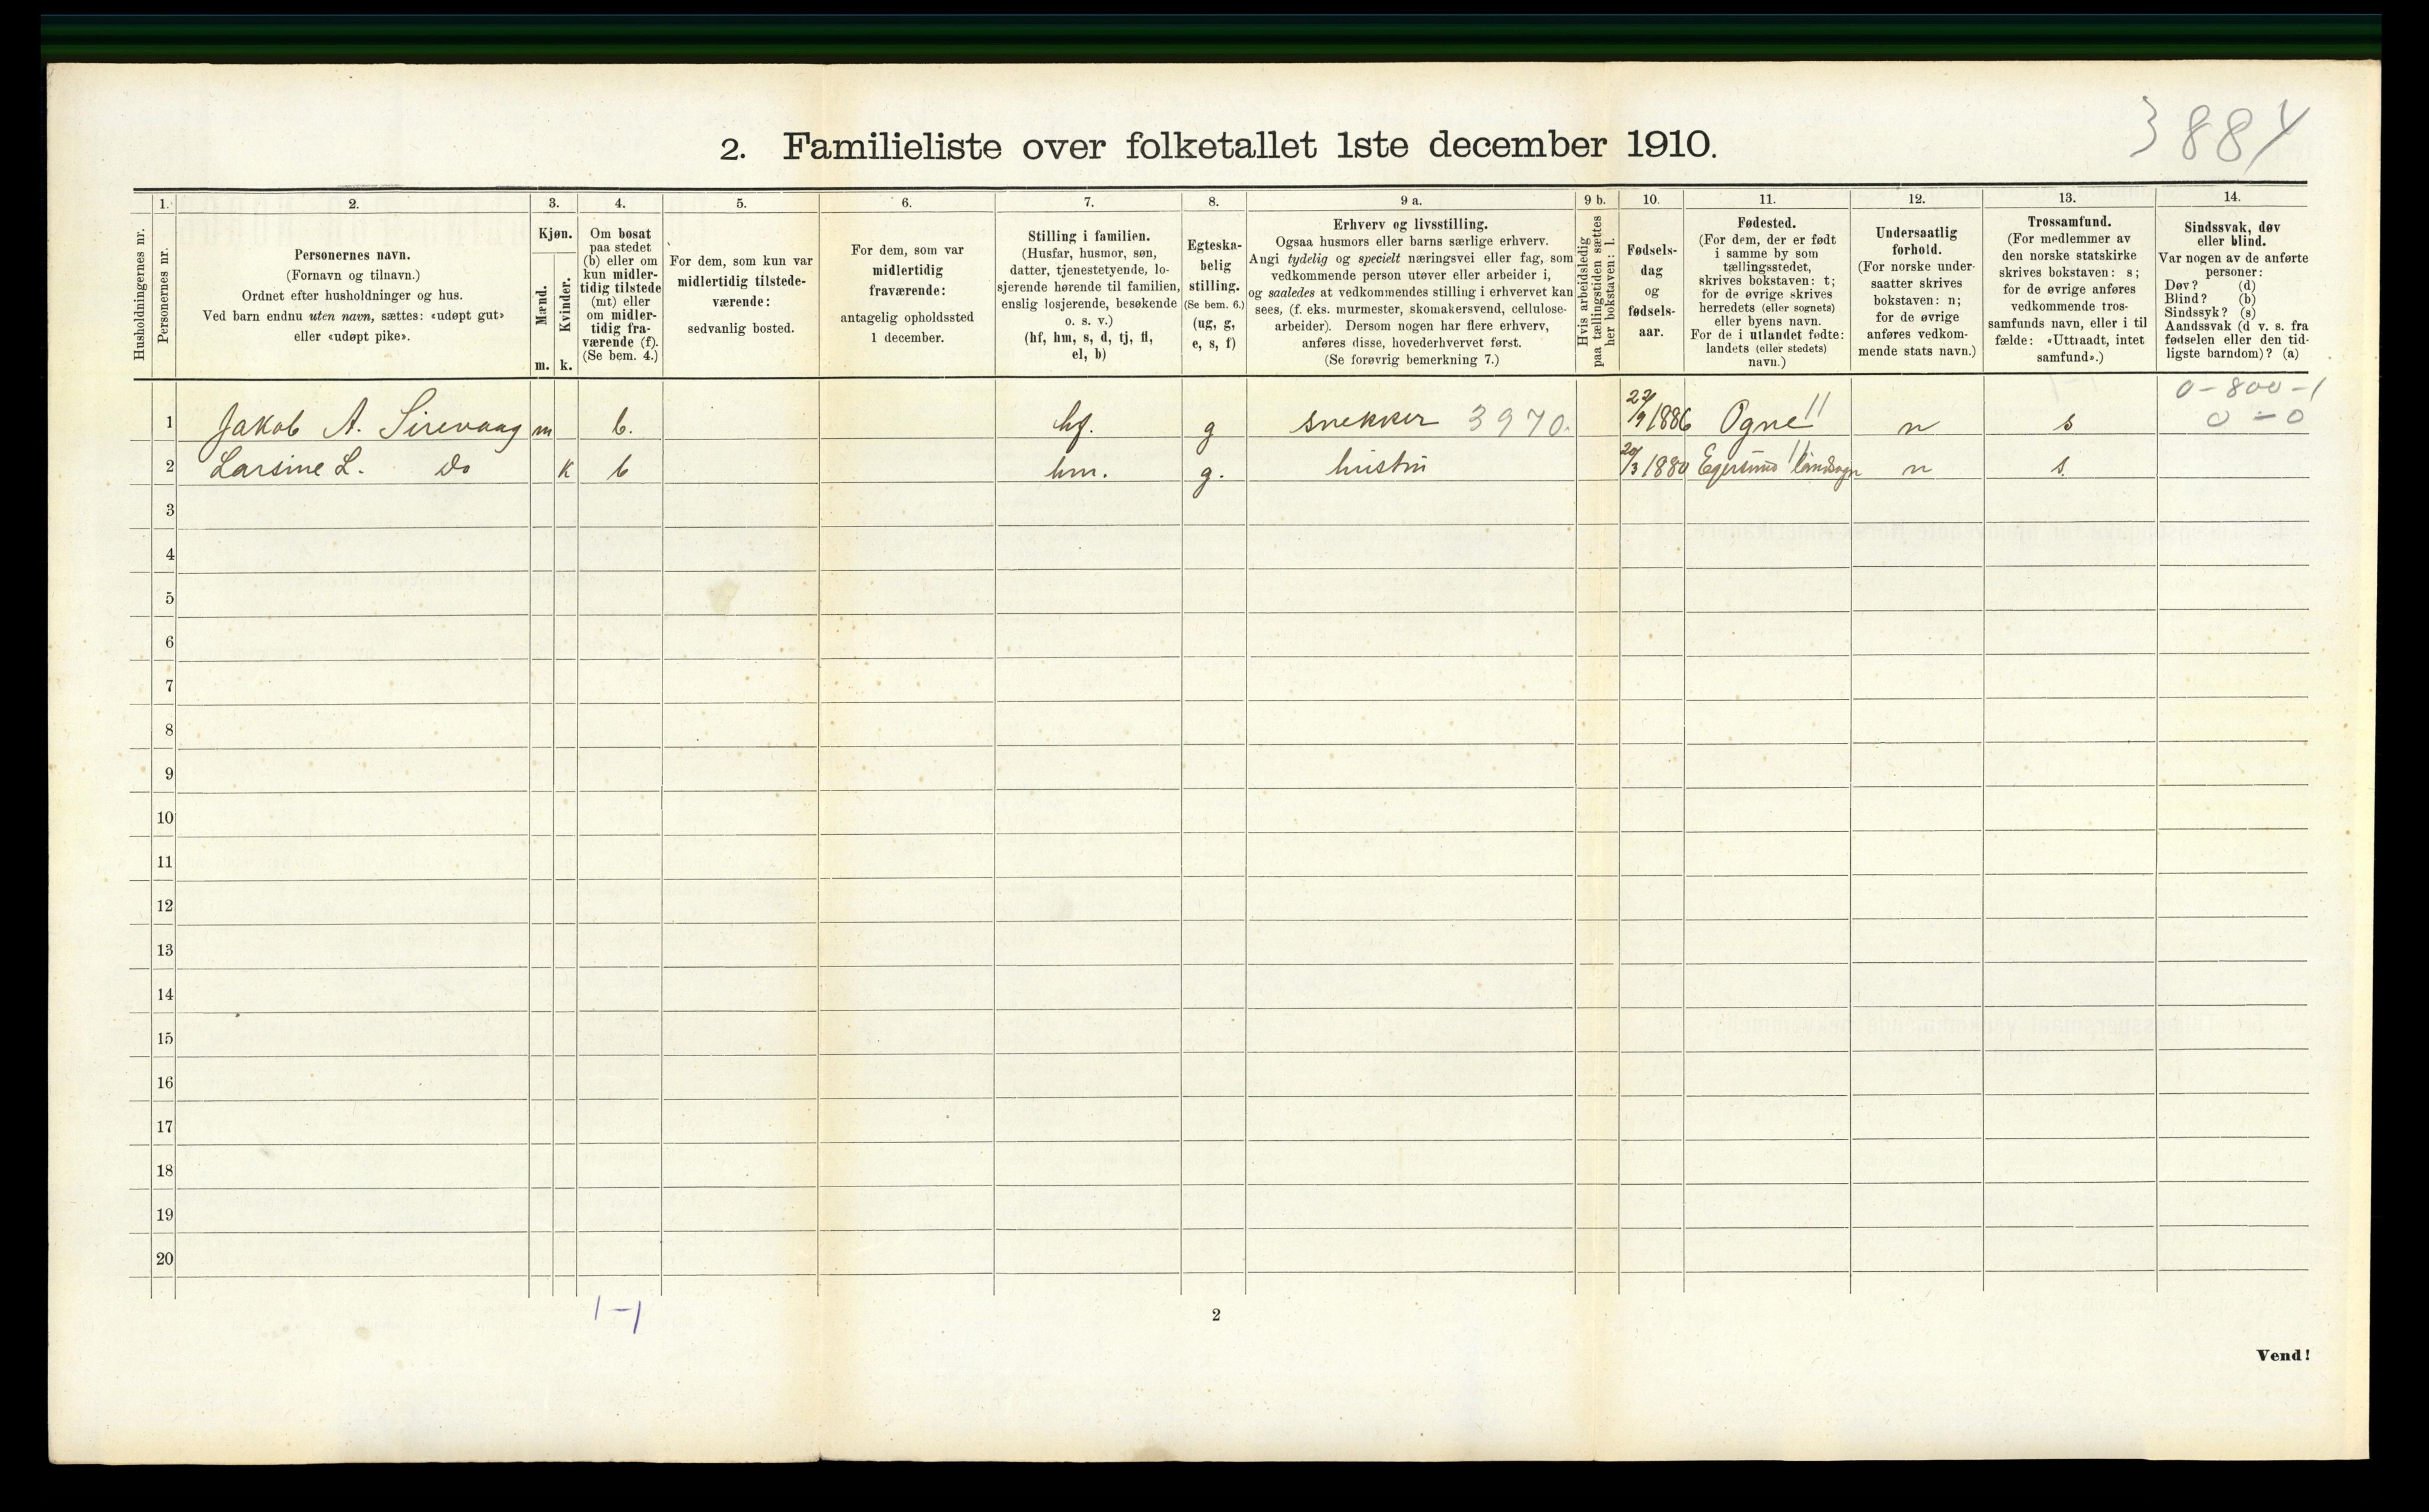 3884
2. Familieliste over folketallet 1ste december 1910.
1. 2. 3. 4. 5. 6. 7. 8. 9 a. 9 b. 10. 11. 12. 13. 14.
Husholdningernes nr.
Personernes nr.
Personernes navn.
(Fornavn og tilnavn.)
Ordnet efter husholdninger og hus.
Ved barn endnu uten navn, sættes: «udøpt gut»
eller «udøpt pike».
Kjøn.
Mænd.
Kvinder.
m. k.
Om bosat
paa stedet
(b) eller om
kun midler-
tidig tilstede
(mt) eller
om midler-
tidig fra-
værende (f).
(Se bem. 4.)
For dem, som kun var
midlertidig tilstede-
værende:
sedvanlig bosted.
For dem, som var
midlertidig
fraværende:
antagelig opholdssted
1 december.
Stilling i familien.
(Husfar, husmor, søn,
datter, tjenestetyende, lo-
sjerende hørende til familien,
enslig losjerende, besøkende
o. s. v.)
(hf, hm, s, d, tj, fl,
el, b)
Egteska-
belig
stilling.
(Se bem. 6.)
(ug, g,
e, s, f)
Erhverv og livsstilling.
Ogsaa husmors eller barns særlige erhverv.
Angi tydelig og specielt næringsvei eller fag, som
vedkommende person utøver eller arbeider i,
og saaledes at vedkommendes stilling i erhvervet kan
sees, (f. eks. murmester, skomakersvend, cellulose-
arbeider). Dersom nogen har flere erhverv,
anføres disse, hovederhvervet først.
(Se forøvrig bemerkning 7.)
Hvis arbeidsledig
paa tællingstiden sættes
her bokstaven: l.
Fødsels-
dag
og
fødsels-
aar.
Fødested.
(For dem, der er født
i samme by som
tællingsstedet,
skrives bokstaven: t;
for de øvrige skrives
herredets (eller sognets)
eller byens navn.
For de i utlandet fødte:
landets (eller stedets)
navn.)
Undersaatlig
forhold.
(For norske under-
saatter skrives
bokstaven: n;
for de øvrige
anføres vedkom-
mende stats navn.)
Trossamfund.
(For medlemmer av
den norske statskirke
skrives bokstaven: s;
for de øvrige anføres
vedkommende tros-
samfunds navn, eller i til
fælde: «Uttraadt, intet
samfund».)
Sindssvak, døv
eller blind.
Var nogen av de anførte
personer:
Døv? (d)
Blind? (b)
Sindssyk? (s)
Aandssvak (d v. s. fra
fødselen eller den tid-
ligste barndom)? (a)
0-800-1
1 Jakob A. Sirevaag m b. hf. g snekker 3970. 22/9 1886 Ogne n s 0-0
2 Larsine L. do k b hm. g. hustru 20/3 1880 Egersund landsogn n s.
3
4
5
6
7
8
9
10
11
12
13
14
15
16
17
18
19
20
1-1
2
Vend!